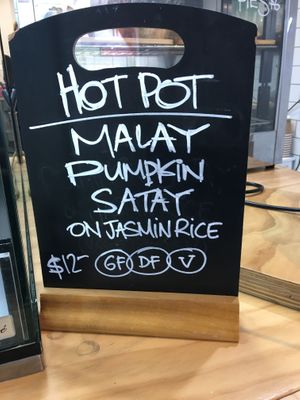 HOT POT
MALAY
PUMPKIN
SATAY
ON JASMIN RICE
$12- GF DF V